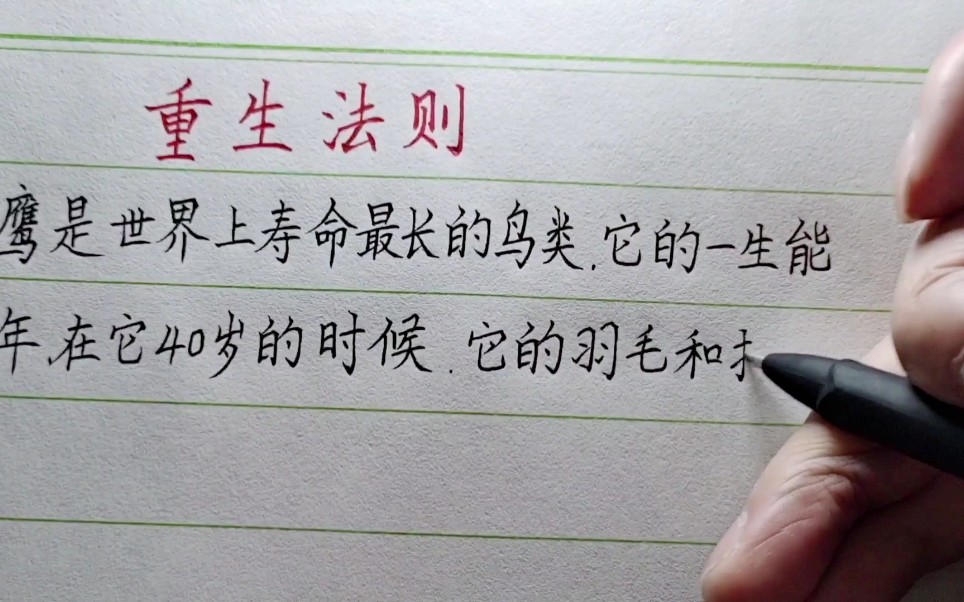 重生法则
鹰是世界上寿命最长的鸟类.它的一生能
年.在它40岁的时候.它的羽毛和